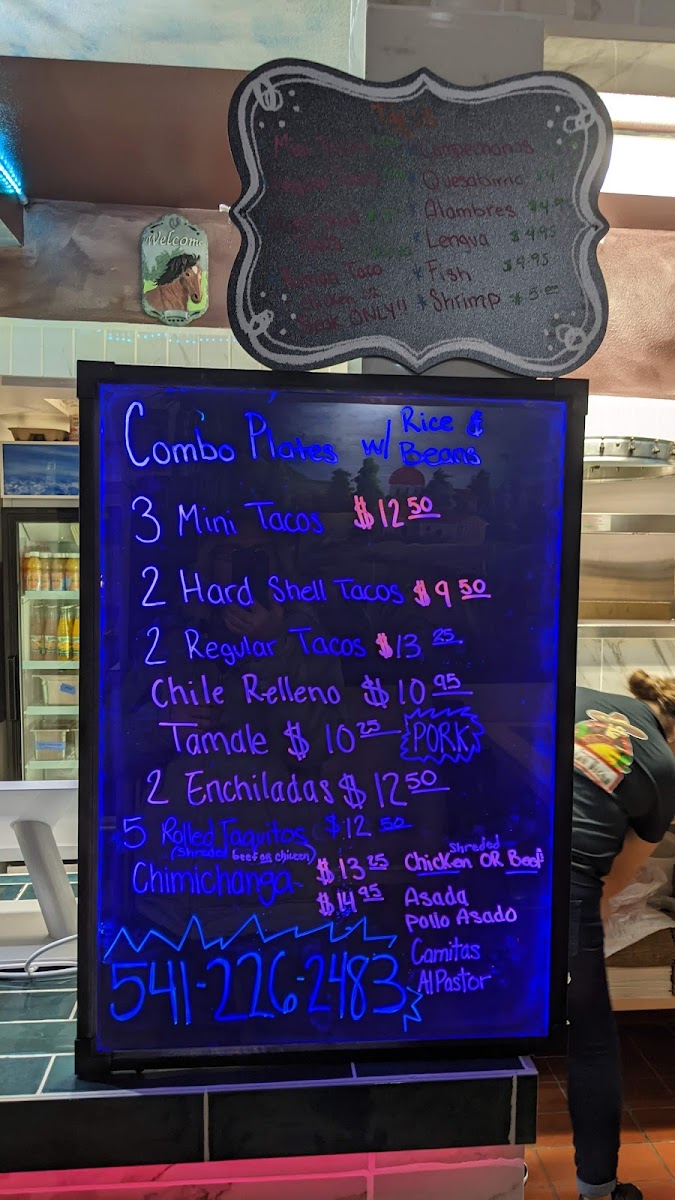 Welcome
Campechanos
Quesabirria $4
Alambres $4.95
* Lengua $4.95
* Fish $4.95
* Shrimp $5.00
Taco
ONLY!!
Combo Plates w/ Rice & Beans
3 Mini Tacos $12.50
2 Hard Shell Tacos $9.50
2 Regular Tacos $13.25
Chile Relleno $10.95
Tamale $10.25 PORK
2 Enchiladas $12.50
5 Rolled Taquitos $12.50
(Shreded beef or chicken)
Chimichanga $13.25 Shreded Chicken OR Beef
$14.95 Asada
Pollo Asado
Carnitas
Al Pastor
541-226-2483